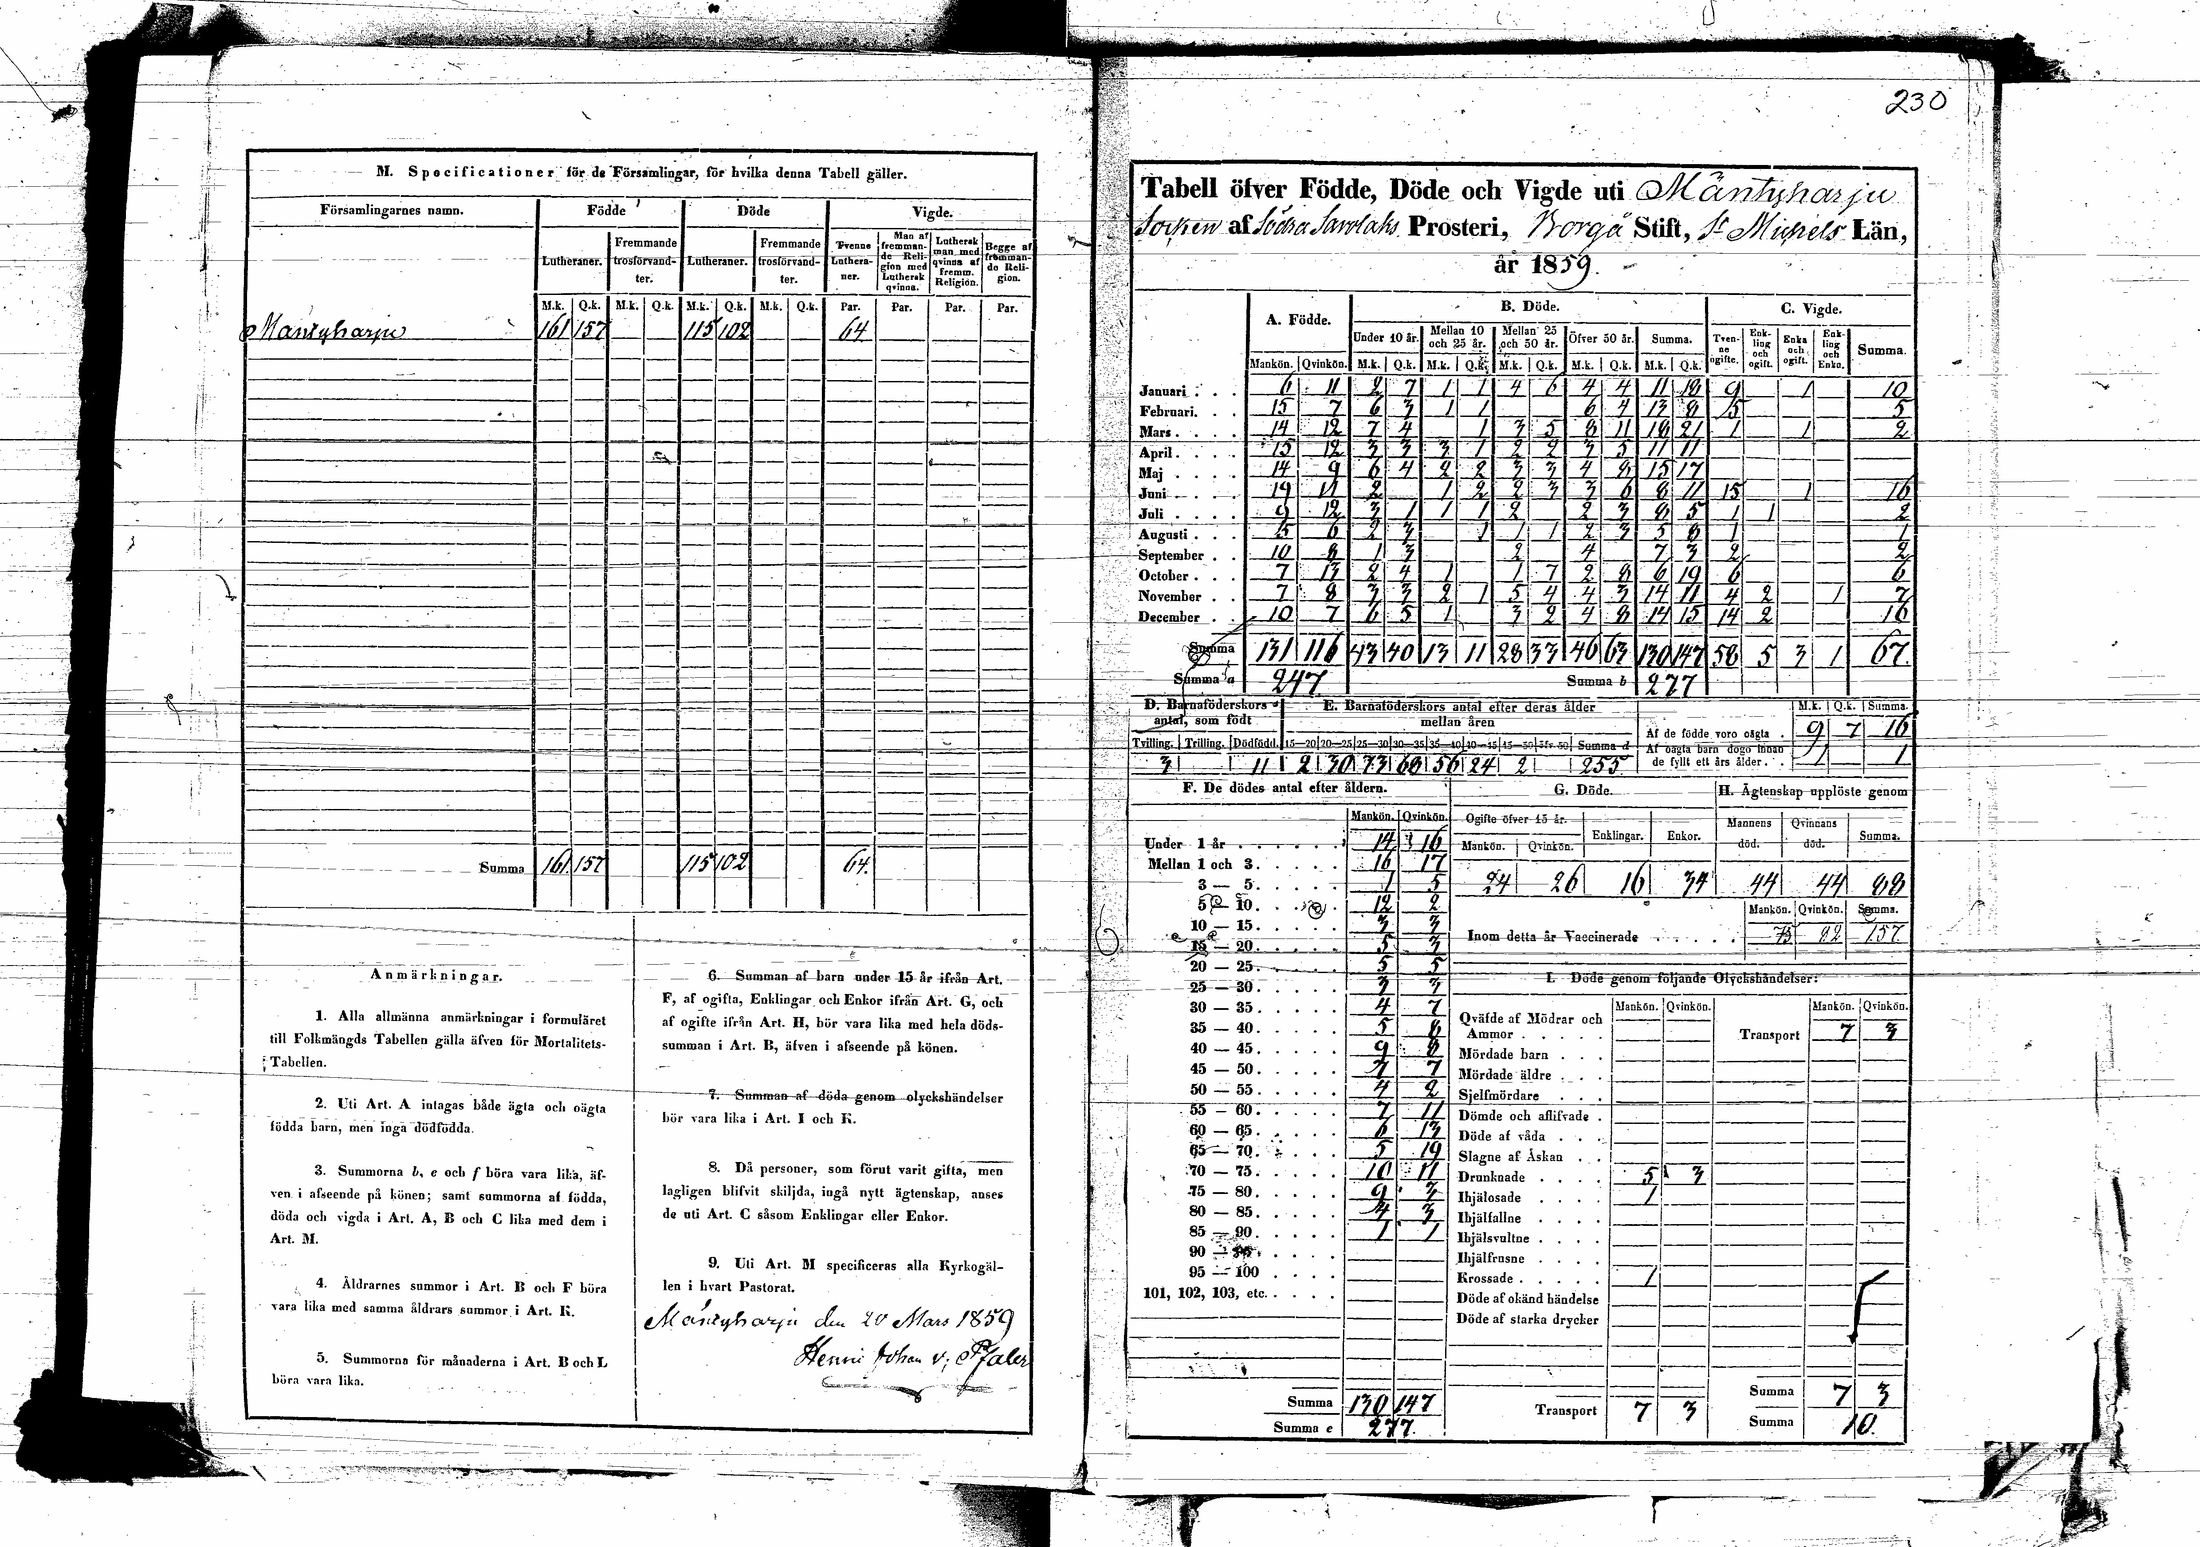 M. Specificationer för de Församlingar, för hvilka denna Tabell gäller.
Församlingarnes namn. Födde Döde Vigde.
Lutheraner. Fremmande trosförvandter. Lutheraner. Fremmande trosförvandter. Tvenne Lutheraner. Man af fremmande Religion med Luthersk qvinna. Luthersk man med qvinna af fremm. Religion. Begge af fremmande Religion.
M.k. Q.k. M.k. Q.k. M.k. Q.k. M.k. Q.k. Par. Par. Par. Par.
Mäntyharju 161 157 115 102 64
Summa 161 157 115 102 64.
Anmärkningar.
1. Alla allmänna anmärkningar i formuläret
till Folkmängds Tabellen gälla äfven för Mortalitets-
Tabellen.
2. Uti Art. A intagas både ägta och oägta
födda barn, men inga dödfödda.
3. Summorna b, e och f böra vara lika, äf-
ven i afseende på könen; samt summorna af födda,
döda och vigda i Art. A, B och C lika med dem i
Art. M.
4. Åldrarnes summor i Art. B och F böra
vara lika med samma åldrars summor i Art. K.
5. Summorna för månaderna i Art. B och L
böra vara lika.
6. Summan af barn under 15 år ifrån Art.
F, af ogifta, Enklingar och Enkor ifrån Art. G, och
af ogifte ifrån Art. H, bör vara lika med hela döds-
summan i Art. B, äfven i afseende på könen.
7. Summan af döda genom olyckshändelser
bör vara lika i Art. I och K.
8. Då personer, som förut varit gifta, men
lagligen blifvit skiljda, ingå nytt ägtenskap, anses
de uti Art. C såsom Enklingar eller Enkor.
9. Uti Art. M specificeras alla Kyrkogäl-
len i hvart Pastorat.
Mäntyharju den 20 Mars 1859
Henric Johan v; Pfaler
230
Tabell öfver Födde, Döde och Vigde uti Mäntyharju
Socken af Södra Savolaks Prosteri, Borgå Stift, St Michels Län,
år 1859.
A. Födde. B. Döde. C. Vigde.
Under 10 år. Mellan 10 och 25 år. Mellan 25 och 50 år. Öfver 50 år. Summa. Tvenne ogifte. Enkling och ogift. Enka och ogift. Enkling och Enka. Summa.
Mankön. Qvinkön. M.k. Q.k. M.k. Q.k. M.k. Q.k. M.k. Q.k. M.k. Q.k.
Januari 6 11 2 7 1 1 4 6 4 4 11 18 9 1 10
Februari. 15 7 6 3 1 1 6 4 13 8 5 5
Mars 14 12 7 4 1 3 5 8 11 18 21 1 1 2
April 15 12 3 3 3 1 2 2 3 5 11 11
Maj 14 9 6 4 2 2 3 3 4 8 15 17
Juni 19 11 2 1 2 2 3 3 6 8 11 15 1 16
Juli 9 12 3 1 1 1 2 2 3 8 5 1 1 2
Augusti 5 6 2 3 1 1 1 2 3 5 8 1 1
September 10 8 1 3 2 4 7 3 2 2
October 7 13 2 4 1 1 7 2 8 6 19 6 6
November 7 8 3 3 2 1 5 4 4 3 14 11 4 2 1 7
December 10 7 6 5 1 3 2 4 8 14 15 14 2 16
Summa 131 116 43 40 13 11 28 33 46 63 130 147 58 5 3 1 67.
Summa a 247 Summa b 277
D. Barnaföderskors antal, som födt E. Barnaföderskors antal efter deras ålder mellan åren
Tvilling. Trilling. Dödfödd. 15—20 20—25 25—30 30—35 35—40 40—45 45—50 öfv. 50 Summa d
3 11 2 30 73 68 56 24 2 255
M.k. Q.k. Summa.
Af de födde voro oägta 9 7 16
Af oägta barn dogo innan de fyllt ett års ålder 1 1
F. De dödes antal efter åldern.
Mankön. Qvinkön.
Under 1 år 14 16
Mellan 1 och 3 16 17
3 — 5 1 5
5 — 10 12 2
10 — 15 3 3
15 — 20 5 3
20 — 25 5 5
25 — 30 3 3
30 — 35 4 7
35 — 40 5 8
40 — 45 9 8
45 — 50 7 7
50 — 55 4 2
55 — 60 7 11
60 — 65 6 13
65 — 70 5 19
70 — 75 10 11
75 — 80 9 3
80 — 85 4 3
85 — 90 1 1
90 — 95
95 — 100
101, 102, 103, etc.
Summa 130 147
Summa e 277.
G. Döde.
Ogifte öfver 15 år. Enklingar. Enkor.
Mankön. Qvinkön.
24 26 16 34
H. Ägtenskap upplöste genom
Mannens död. Qvinnans död. Summa.
44 44 88
Mankön. Qvinkön. Summa.
Inom detta år Vaccinerade 75 82 157
I. Döde genom följande Olyckshändelser:
Mankön. Qvinkön. Mankön. Qvinkön.
Qväfde af Mödrar och Ammor Transport 7 3
Mördade barn
Mördade äldre
Sjelfmördare
Dömde och aflifvade
Döde af våda
Slagne af Åskan
Drunknade 5 3
Ihjälosade 1
Ihjälfallne
Ihjälsvultne
Ihjälfrusne
Krossade 1
Döde af okänd händelse
Döde af starka drycker
Transport 7 3
Summa 7 3
Summa 10.